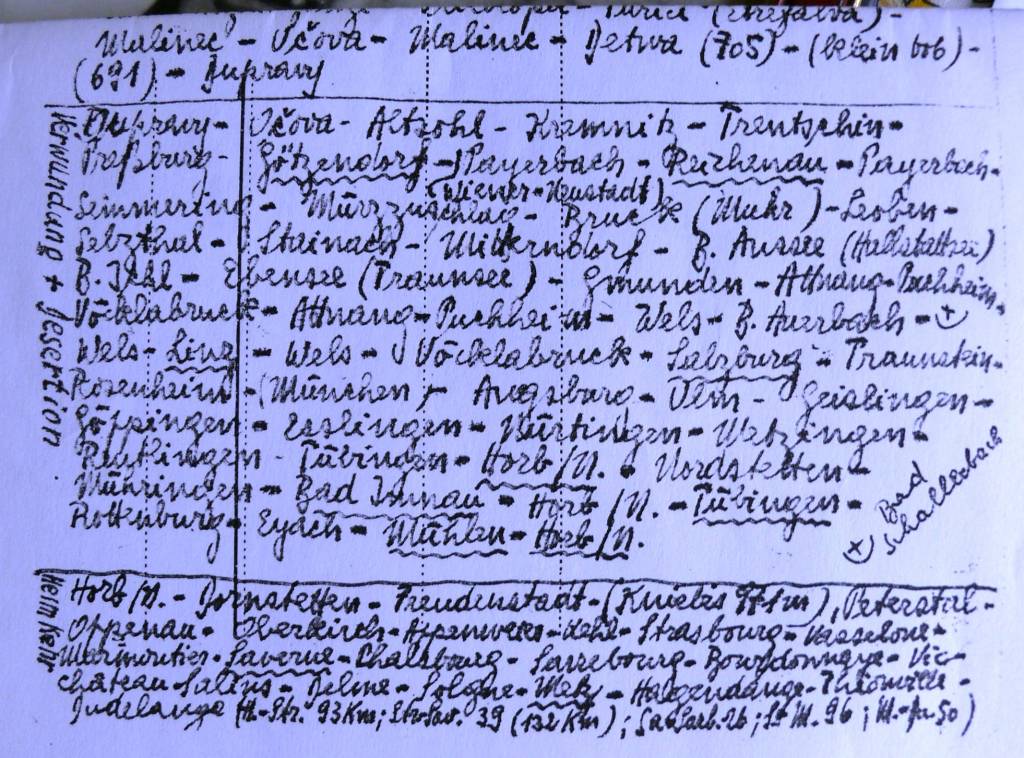 Malinec - Očova - Malinec - Detva (705) - (klein bob) -
(691) - Dupravy
Verwundung + Desertion
Dupravy - Očova - Altsohl - Kremnitz - Trentschin -
Preßburg - Götzendorf - Payerbach - Reichenau - Payerbach -
(Wiener-Neustadt)
Semmering - Mürzzuschlag - Bruck (Muhr) - Leoben -
Selzthal - Stainach - Mitterndorf - B. Aussee (Hallstattsee)
B. Ischl - Ebensee (Traunsee) - Gmunden - Attnang-Puchheim -
Vöcklabruck - Attnang-Puchheim - Wels - B. Auerbach - +)
Wels - Linz - Wels - Vöcklabruck - Salzburg - Traunstein -
Rosenheim - (München) - Augsburg - Ulm - Geislingen -
Göppingen - Esslingen - Nürtingen - Metzingen -
Reutlingen - Tübingen - Horb/N. - Nordstetten -
Mühringen - Bad Imnau - Horb/N. - Tübingen -
Rottenburg - Eyach - Mühlen - Horb/N.
+) Bad Schallerbach
Heimkehr
Horb/N. - Dornstetten - Freudenstadt - (Kniebis 971m), Peterstal -
Oppenau - Oberkirch - Appenweier - Kehl - Strasbourg - Wasselone -
Marmoutier - Saverne - Phalsbourg - Sarrebourg - Bourdonnaye - Vic -
château-Salins - Delme - Solgne - Metz - Hagendange - Thionville -
Dudelange (H.-Str. 93Km; Str.Sav. 39 (132 Km); Sa.Sarb. 26; St M. 96; M.-Du. 50)